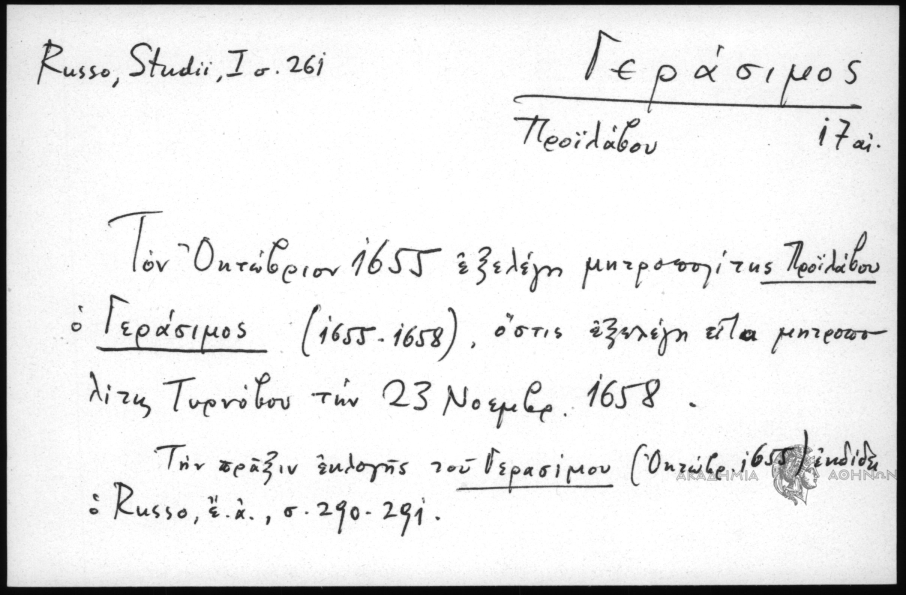 Russo, Studii, I σ. 261
Γεράσιμος
Προϊλάβου 17 αἰ.
Τὸν Ὀκτώβριον 1655 ἐξελέγη μητροπολίτης Προϊλάβου
ὁ Γεράσιμος (1655-1658), ὅστις ἐξελέγη εἶτα μητροπο-
λίτης Τυρνόβου τὴν 23 Νοεμβρ. 1658.
Τὴν πρᾶξιν ἐκλογῆς τοῦ Γερασίμου (Ὀκτώβρ. 1655) ἐκδίδει
ὁ Russo, ἔ.ἀ., σ. 290-291.
ΑΚΑΔΗΜΙΑ ΑΘΗΝΩΝ